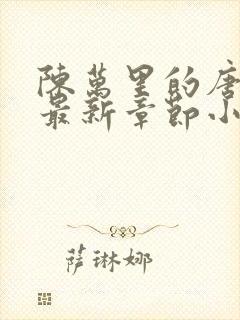 陳萬里的唐
最新章節小
薩琳娜